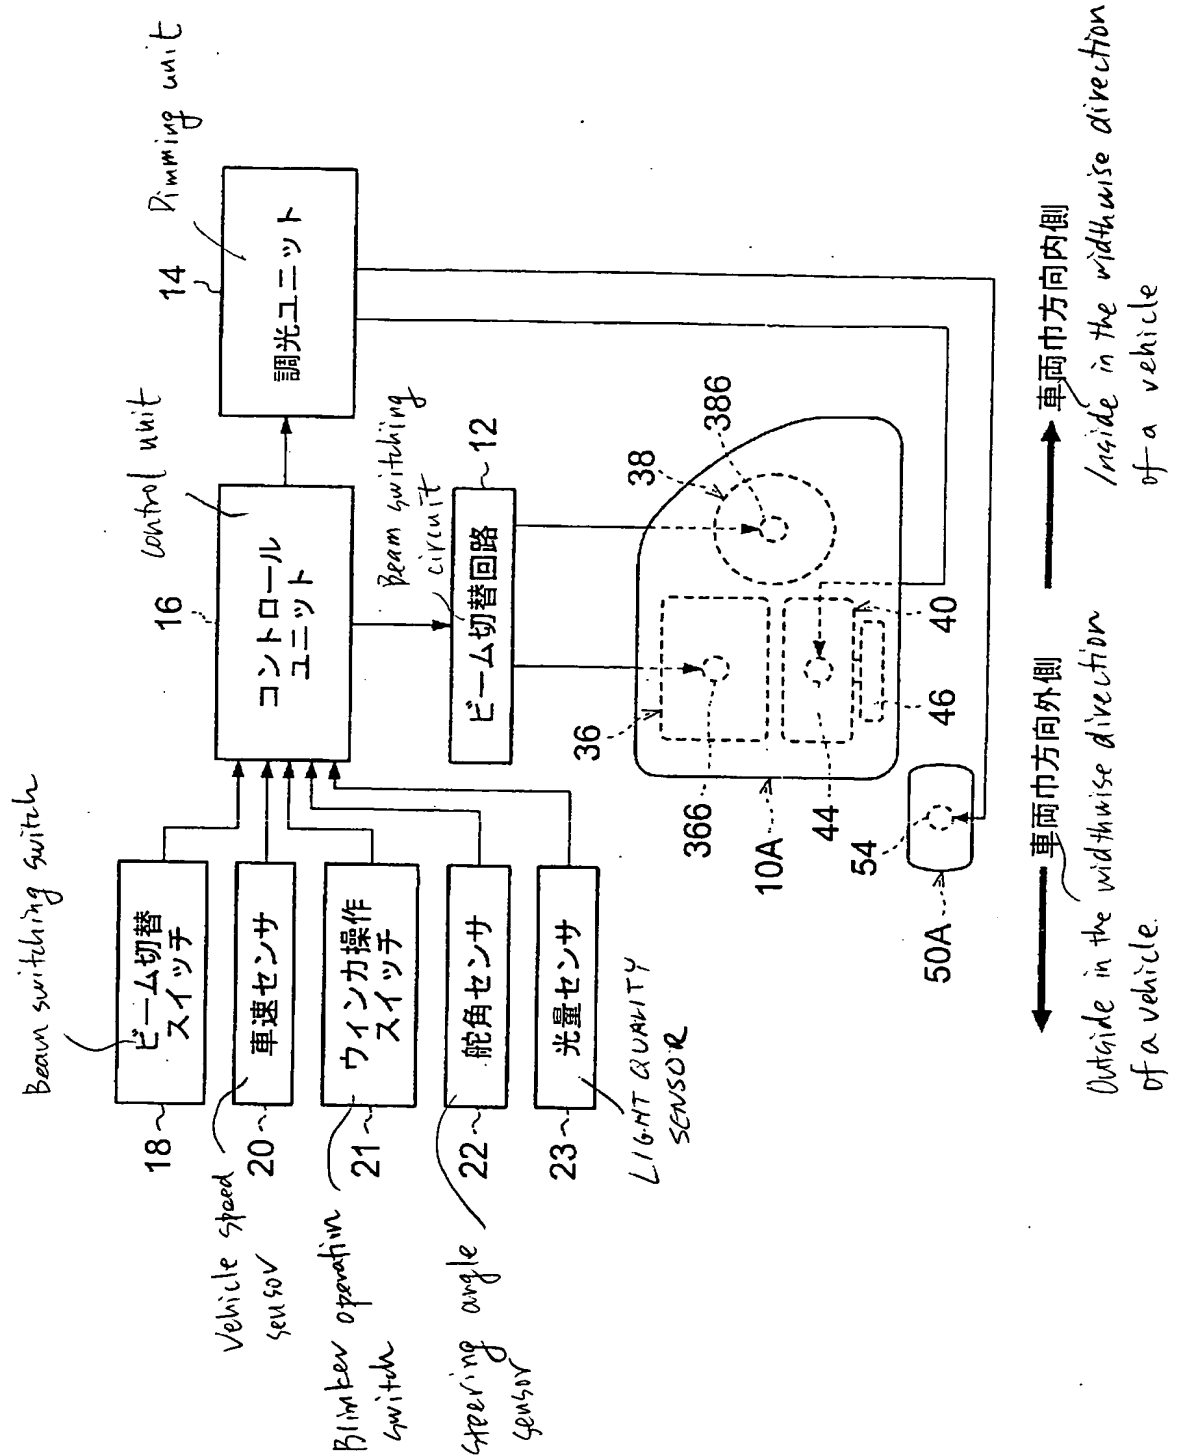 Beam switching switch
ビーム切替
スイッチ
18
Vehicle speed
sensor
車速センサ
20
Blinker operation
switch
ウィンカ操作
スイッチ
21
Steering angle
sensor
舵角センサ
22
光量センサ
23
LIGHT QUALITY
SENSOR
16
control unit
コントロール
ユニット
14
Dimming unit
調光ユニット
Beam switching
circuit
ビーム切替回路
12
36
366
38
386
10A
44
40
46
50A
54
車両巾方向外側
Outside in the widthwise direction
of a vehicle.
車両巾方向内側
Inside in the widthwise direction
of a vehicle